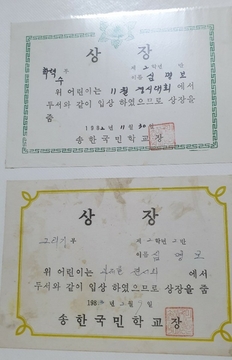 상 장
제 2 학년 반
이름 심명보
위 어린이는 11월 경시대회 에서
두서와 같이 입상 하였으므로 상장을
줌
11월 30일
송한국민학교장
상 장
그리기 부
제 2 학년 2 반
이름 심명보
위 어린이는 에서
두서와 같이 입상 하였으므로 상장을 줌
송한국민학교장